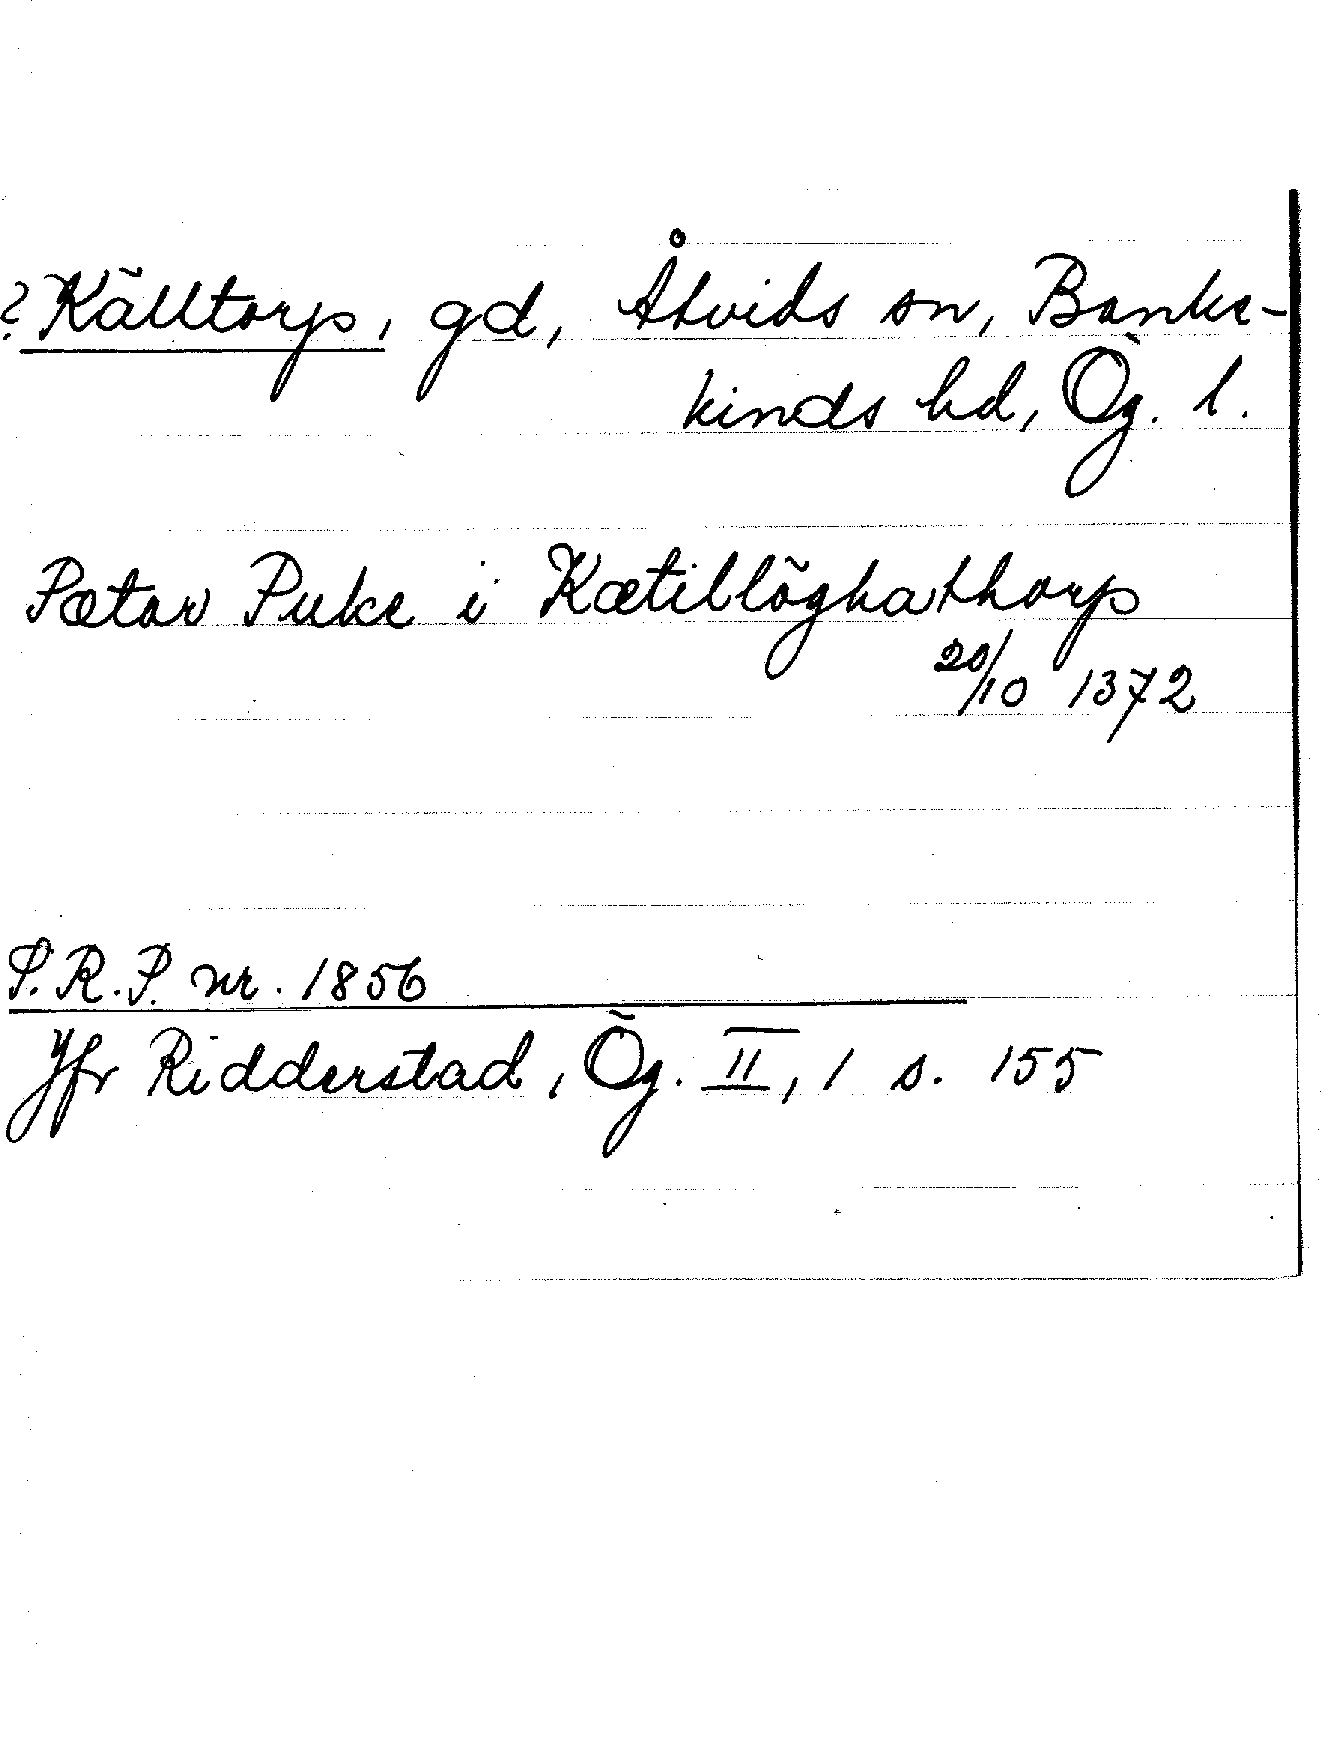 ? Källtorp, gd, Åtvids sn, Banke-
kinds hd, Ög. l.
Pætar Puke i Kætilløghathorp
20/10 1372
S.R.P. nr. 1856
Jfr Ridderstad, Ög. II, 1 s. 155